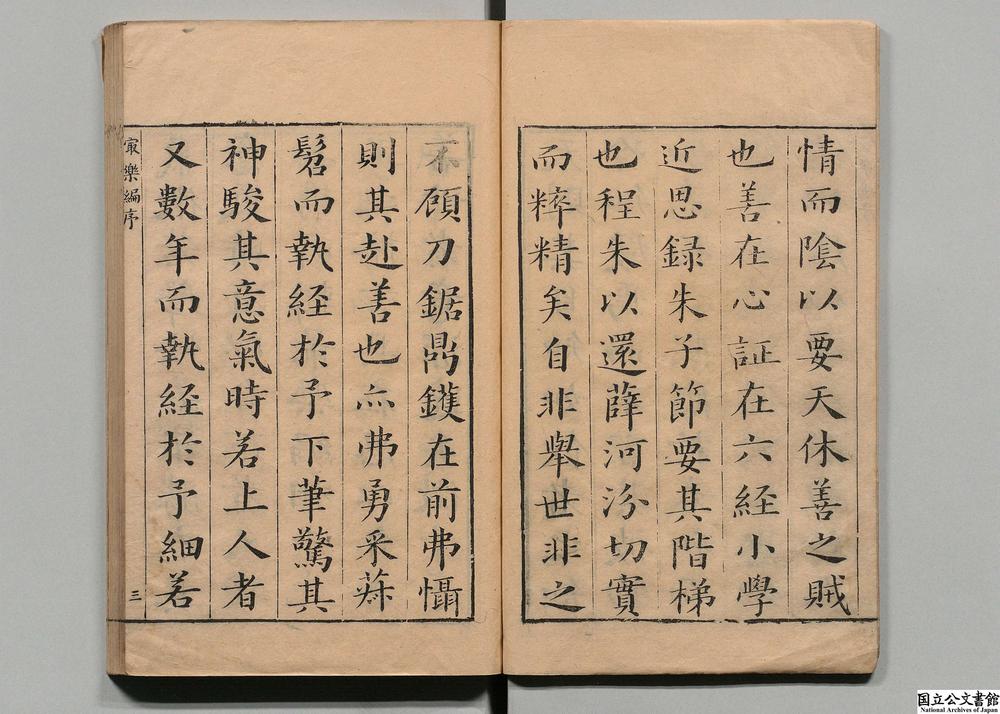 情而陰以要天休善之賊
也善在心証在六經小學
近思録朱子節要其階梯
也程朱以還薛河汾切實
而粹精矣自非舉世非之
不顧刀鋸鼎鑊在前弗懾
則其赴善也亦弗勇釆蒜
髫而執経於予下筆驚其
神駿其意氣時若上人者
又數年而執経於予細若
㝡樂編序
三
国立公文書館
National Archives of Japan